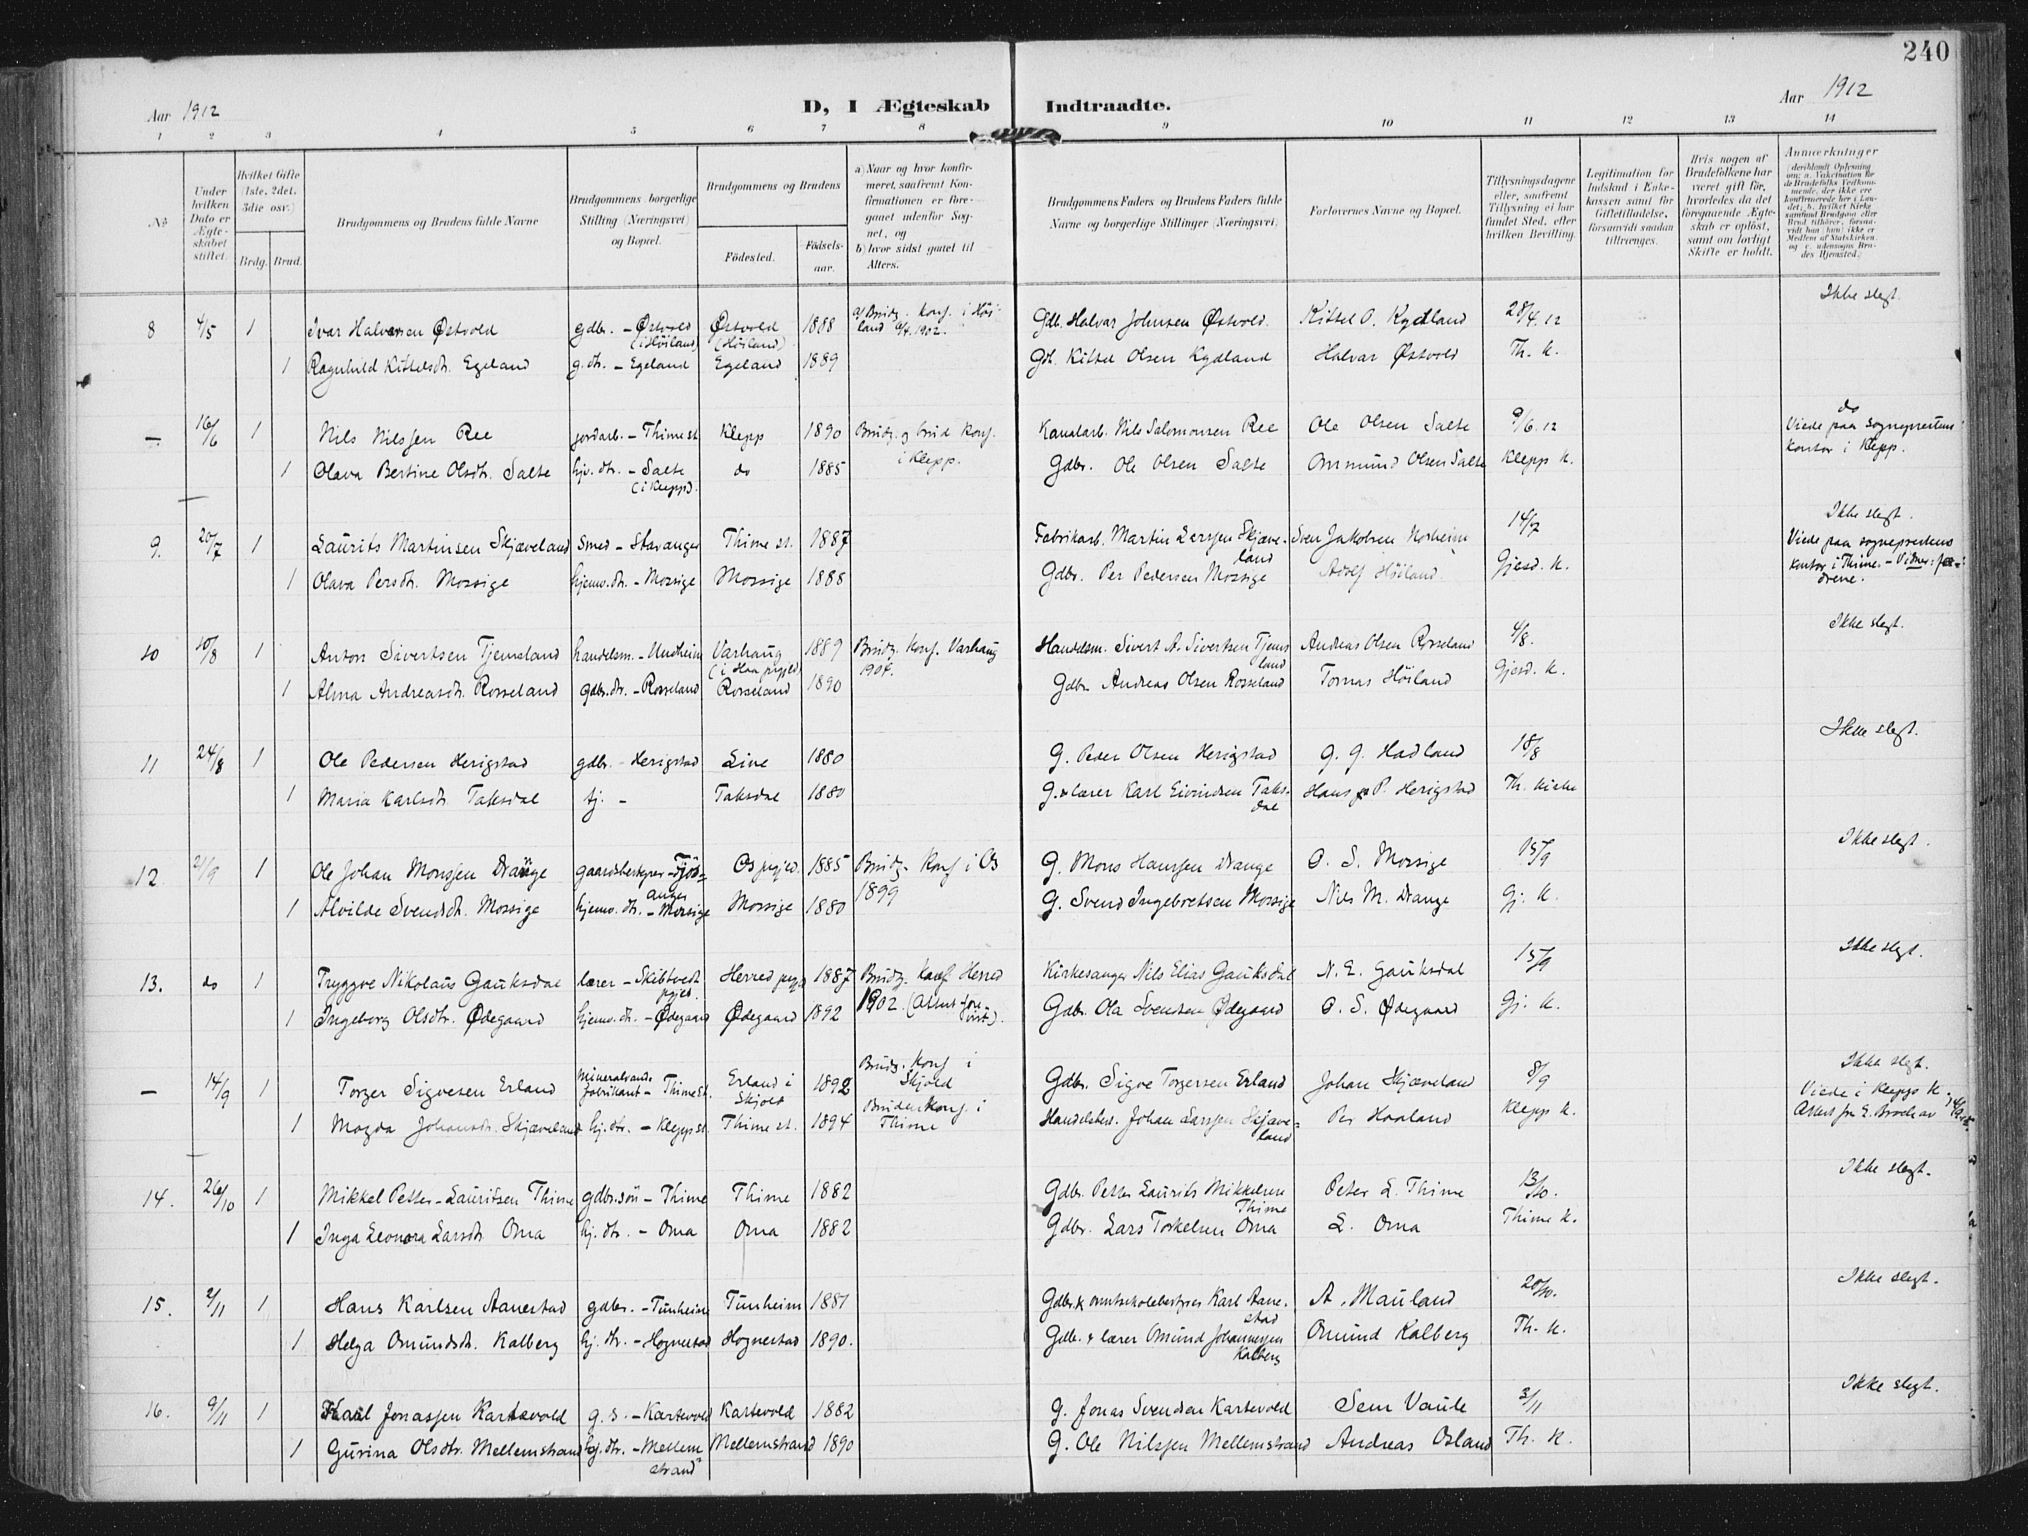 240
Aar 1912
D, I Ægteskab Indtraadte.
Aar 1912
1 2 3 4 5 6 7 8 9 10 11 12 13 14
No
Under hvilken Dato er Ægteskabet stiftet.
Hvilket Gifte (1ste, 2det, 3die osv.)
Brdg. Brud.
Brudgommens og Brudens fulde Navne
Brudgommens borgerlige Stilling (Næringsvei) og Bopæl.
Brudgommens og Brudens
Fødested. Fødselsaar.
a) Naar og hvor konfirmeret, saafremt Konfirmationen er foregaaet udenfor Sognet, og
b) hvor sidst gaaet til Alters.
Brudgommens Faders og Brudens Faders fulde Navne og borgerlige Stillinger (Næringsvei).
Forlovernes Navne og Bopæl.
Tillysningsdagene eller, saafremt Tillysning ei har fundet Sted, efter hvilken Bevilling.
Legitimation for Indskud i Enkekassen samt for Giftetilladelse, forsaavidt saadan tiltrænges.
Hvis nogen af Brudefolkene har været gift før, hvorledes da det foregaaende Ægteskab er opløst, samt om lovligt Skifte er holdt.
Anmærkninger
Ikke slegt.
8 4/5 1 Ivar Halvorsen Østvold gdbr. - Østvold (i Høiland) Østvold (Høiland) 1888 a/ Brudg. konf. i Høiland 6/4. 1902. Gdb. Halvar Johnsen Østvold. Kittel O. Kydland 28/4.12
1 Ragnhild Kittelsdtr. Egeland g.dtr. - Egeland Egeland 1889 Gdb. Kittel Olsen Kydland Halvar Østvold Th. K.
— 16/6 1 Nils Nilssen Ree jordarb. - Thime st. Klepp 1890 Brudg. og brud konf. i Klepp. Kanalarb. Nils Salomonsen Ree Ole Olsen Salte 9/6.12 do Viede paa sogneprestens kontor i Klepp.
1 Olava Bertine Olsdtr. Salte hjv. dtr. - Salte (i Klepp). do 1885 Gdbr. Ole Olsen Salte Ommund Olsen Salte Klepp K.
Ikke slegt.
9. 20/7 1 Laurits Martinsen Skjæveland Smed - Stavanger Thime st. 1887 Fabrikarb. Martin Larssen Skjæveland Sven Jakobsen Norheim 14/7 Viede paa sogneprestens kontor i Thime. - Vidner: fædrene.
1 Olava Persdtr. Mossige hjemv. dtr. - Mossige Mossige 1888 Gdbr. Per Pedersen Mossige Adolf Høiland. Gjesd. K.
Ikke slegt.
10 10/8 1 Anton Sivertsen Tjemsland handelsm. - Undheim Varhaug (i Haa prgjeld) 1889 Brudg. konf. Varhaug 1904. Handelsm. Sivert A. Sivertsen Tjemsland Andreas Olsen Rosseland 4/8.
1 Alma Andreasdtr. Rosseland gdbr. dtr. - Rosseland Rosseland 1890 Gdbr. Andreas Olsen Rosseland Tomas Høiland Gjesd. K.
Ikke slegt.
11 24/8 1 Ole Pedersen Herigstad gdbr. - Herigstad Line 1880 G. Peder Olsen Herigstad G. G. Hadland 18/8
1 Maria Karlsdtr. Taksdal tj. - Taksdal 1880 G. & lærer Karl Eivindsen Taksdal Hans P. Herigstad Th. kirke
Ikke slegt.
12. 21/9 1 Ole Johan Monssen Drange gaardsbestyrer - Fjøsanger Os prgjed. 1885 Brudg. konf i Os 1899 G. Mons Hanssen Drange O. S. Mossige 15/9
1 Alvilde Svendsdtr. Mossige hjemv. dtr. - Mossige Mossige 1880 G. Svend Ingebretsen Mossige Nils M. Drange Gj. K.
Ikke slegt.
13. do 1 Tryggve Nikolaus Gauksdal lærer - Skibtvedt prgjed. Herred prgjd 1887 Brudg. konf Herred 1902. (Attest forevist). Kirkesanger Nils Elias Gauksdal N. E. Gauksdal 15/9
1 Ingeborg Olsdtr. Ødegaard hjemv. dtr. - Ødegaard Ødegaard 1892 Gdbr. Ola Svendsen Ødegaard O. S. Ødegaard Gj. K.
Ikke slegt.
— 14/9 1 Torger Sigvesen Erland Mineralvandsfabrikant - Thime St. Erland i Skjold 1892 Brudg. konf i Skjold Gdbr. Sigve Torgersen Erland Johan Skjæveland 8/9 Viede i Klepp K.
1 Magda Johansdtr. Skjæveland hj. dtr. - Klepp st. Thime st. 1894 Bruden konf. i Thime Handelsbest. Johan Larssen Skjæveland Per Haaland Klepp K. Attest fra E. Broch av 14/9
Ikke slegt.
14. 26/10 1 Mikkel Petter-Lauritsen Thime gdbr.søn - Thime Thime 1882 Gdbr. Petter Laurits Mikkelsen Thime Peter L. Thime 13/10.
1 Inga Leonora Larsdtr. Oma hj. dtr. - Oma Oma 1882 Gdbr. Lars Torkelsen Oma L. Oma Thime K.
Ikke slegt.
15. 2/11 1 Hans Karlsen Aanestad gdbr. - Tunheim Tunheim 1881 Gdbr. & amtskolebestyrer Karl Aanestad A. Mauland 20/10.
1 Helga Omundsdtr. Kalberg hj. dtr. - Hognestad Hognestad 1890. Gdb. & lærer Omund Johannessen Kalberg Omund Kalberg Th. K.
Ikke slegt.
16. 9/11 1 Karl Jonassen Kartevold g. s. - Kartevold Kartevold 1882 G. Jonas Svendsen Kartevold Sem Vaule 3/11
1 Gurina Olsdtr. Mellemstrand hj. dtr. - Mellemstrand Mellemstrand 1890 G. Ole Nilssen Mellemstrand Andreas Osland Th. K.